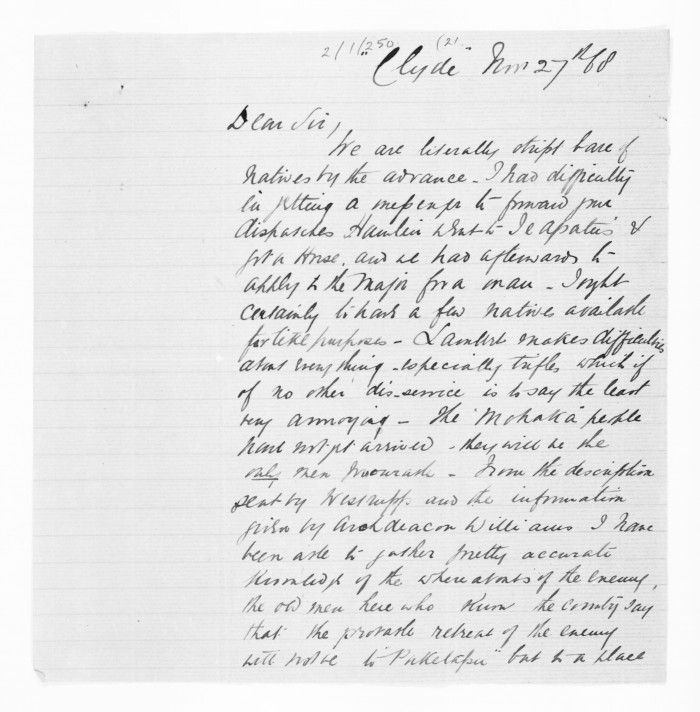 2/1/250 (21
"Clyde" Nov 27th 68
Dear Sir,
We are literally stript bare of
Natives by the advance - I had difficulty
in getting a messenger to forward your
dispatches Hamlin went to Te Apatu's &
got a Horse, and we had afterwards to
apply to the Major for a man - I ought
certainly to have a few natives available
for like purposes - Lambert makes difficulties
about everything - especially trifles which if
of no other dis-service is to say the least
very annoying - The "Mohaka" people
have not yet arrived - they will be the
only men procurable - From the description
sent by Westrupp and the information
given by Archdeacon Williams I have
been able to gather pretty accurate
knowledge of the whereabouts of the enemy,
the old men here who know the country say
that the probable retreat of the enemy
will not be to "Puketapu" but to a place